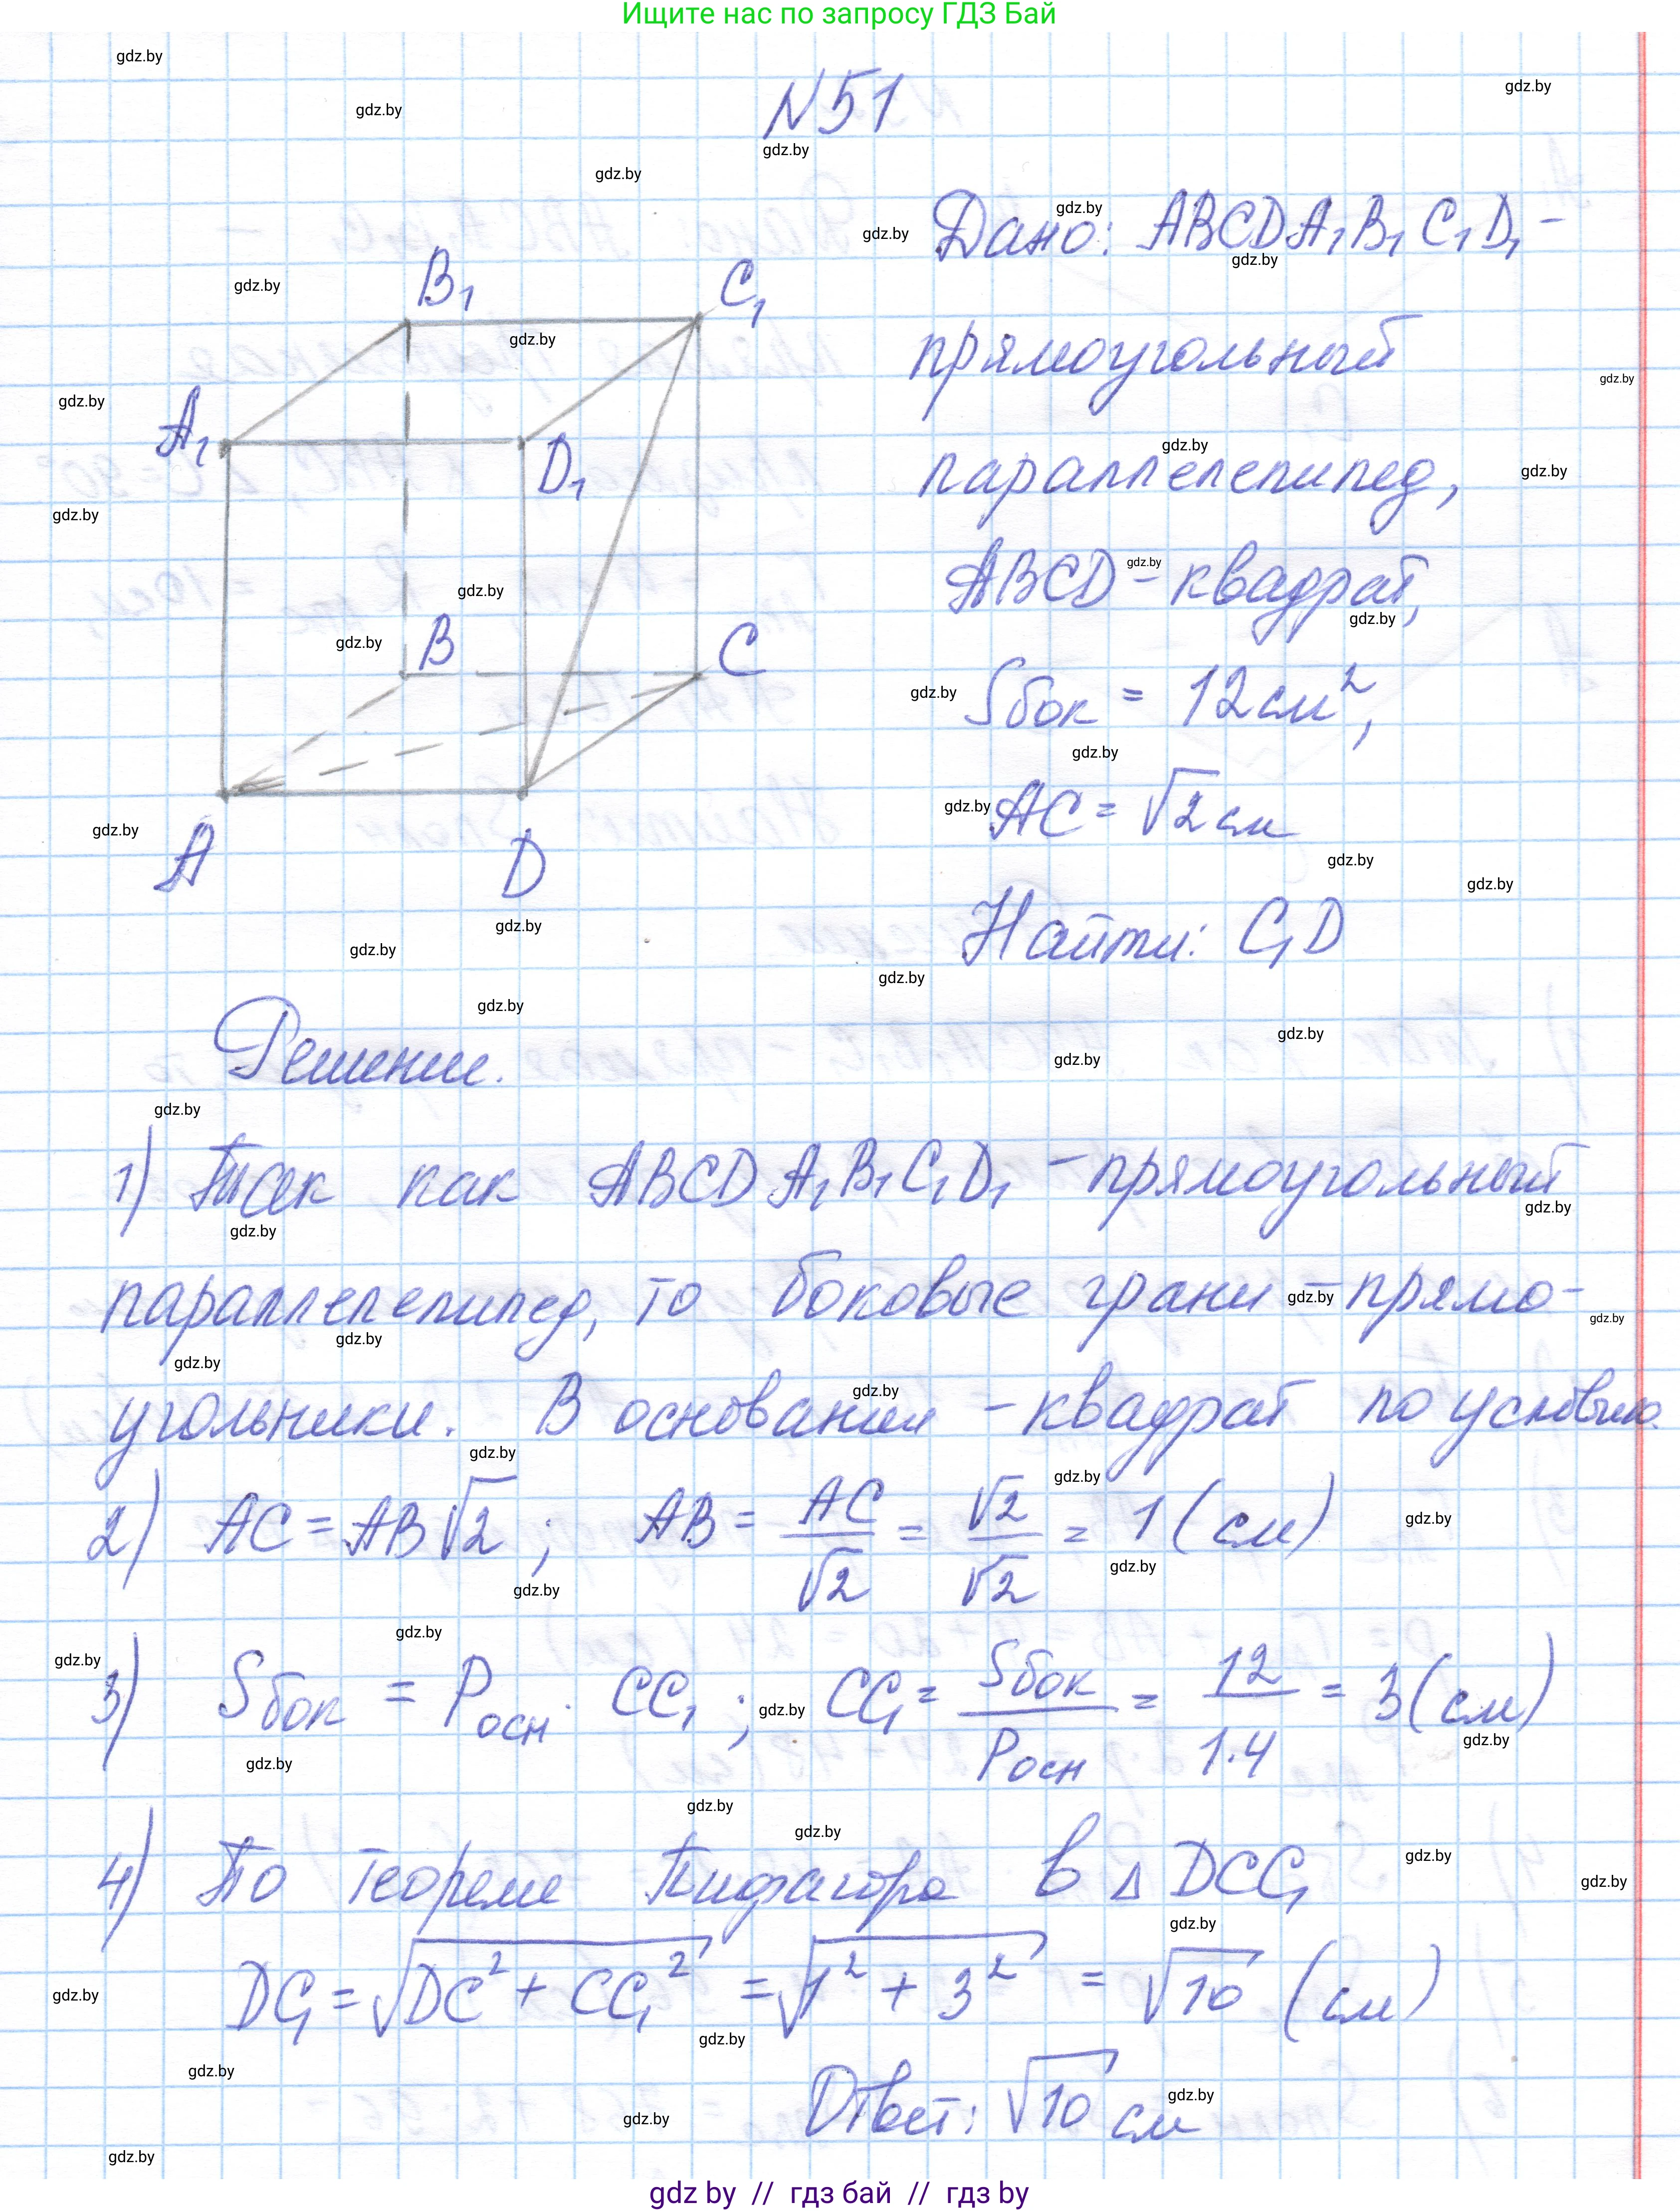 Ищите нас по запросу ГДЗ Бай
N51
Дано: ABCDA₁B₁C₁D₁ –
прямоугольный
параллелепипед,
ABCD – квадрат,
Sбок = 12 см²,
AC = √2 см
Найти: C₁D
B₁
C₁
A₁
D₁
B
C
A
D
Решение.
1) Так как ABCDA₁B₁C₁D₁ – прямоугольный
параллелепипед, то боковые грани – прямо-
угольники. В основании – квадрат по условию.
2) AC = AB√2 ; AB = AC/√2 = √2/√2 = 1 (см)
3) Sбок = Pосн · CC₁ ; CC₁ = Sбок/Pосн = 12/1·4 = 3 (см)
4) По теореме Пифагора в Δ DCC₁
DC₁ = √DC² + CC₁² = √1² + 3² = √10 (см)
Ответ: √10 см
gdz by // гдз бай // гдз by